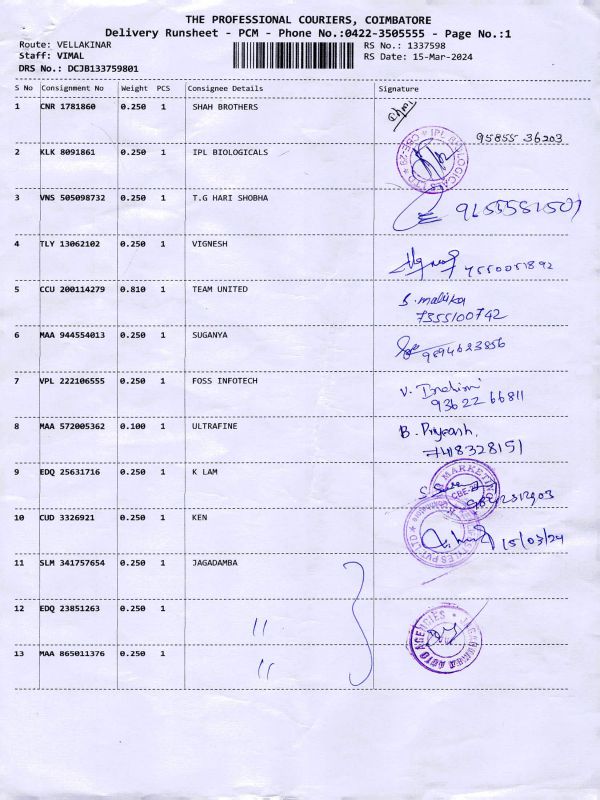 THE PROFESSIONAL COURIERS, COIMBATORE
Delivery Runsheet - PCM - Phone No.:0422-3505555 - Page No.:1
Route: VELLAKINAR
RS No.: 1337598
Staff: VIMAL
RS Date: 15-Mar-2024
DRS No.: DCJB133759801
S No Consignment No Weight PCS Consignee Details Signature
1 CNR 1781860 0.250 1 SHAH BROTHERS
95855 36203
2 KLK 8091861 0.250 1 IPL BIOLOGICALS
IPL BIOLOGICALS LTD * CBE-29 *
3 VNS 505098732 0.250 1 T.G HARI SHOBHA
4 TLY 13062102 0.250 1 VIGNESH
5 CCU 200114279 0.810 1 TEAM UNITED
S. mallika
7355100742
6 MAA 944554013 0.250 1 SUGANYA
9894623856
7 VPL 222106555 0.250 1 FOSS INFOTECH
V. Ibrahim
93622 66811
8 MAA 572005362 0.100 1 ULTRAFINE
B. Priyeash,
7418328151
9 EDQ 25631716 0.250 1 K LAM
MARKETING
CBE-
10 CUD 3326921 0.250 1 KEN
15/03/24
PVT LTD
11 SLM 341757654 0.250 1 JAGADAMBA
12 EDQ 23851263 0.250 1 "
JAGADAMBA AUTO AGENCIES
13 MAA 865011376 0.250 1 "